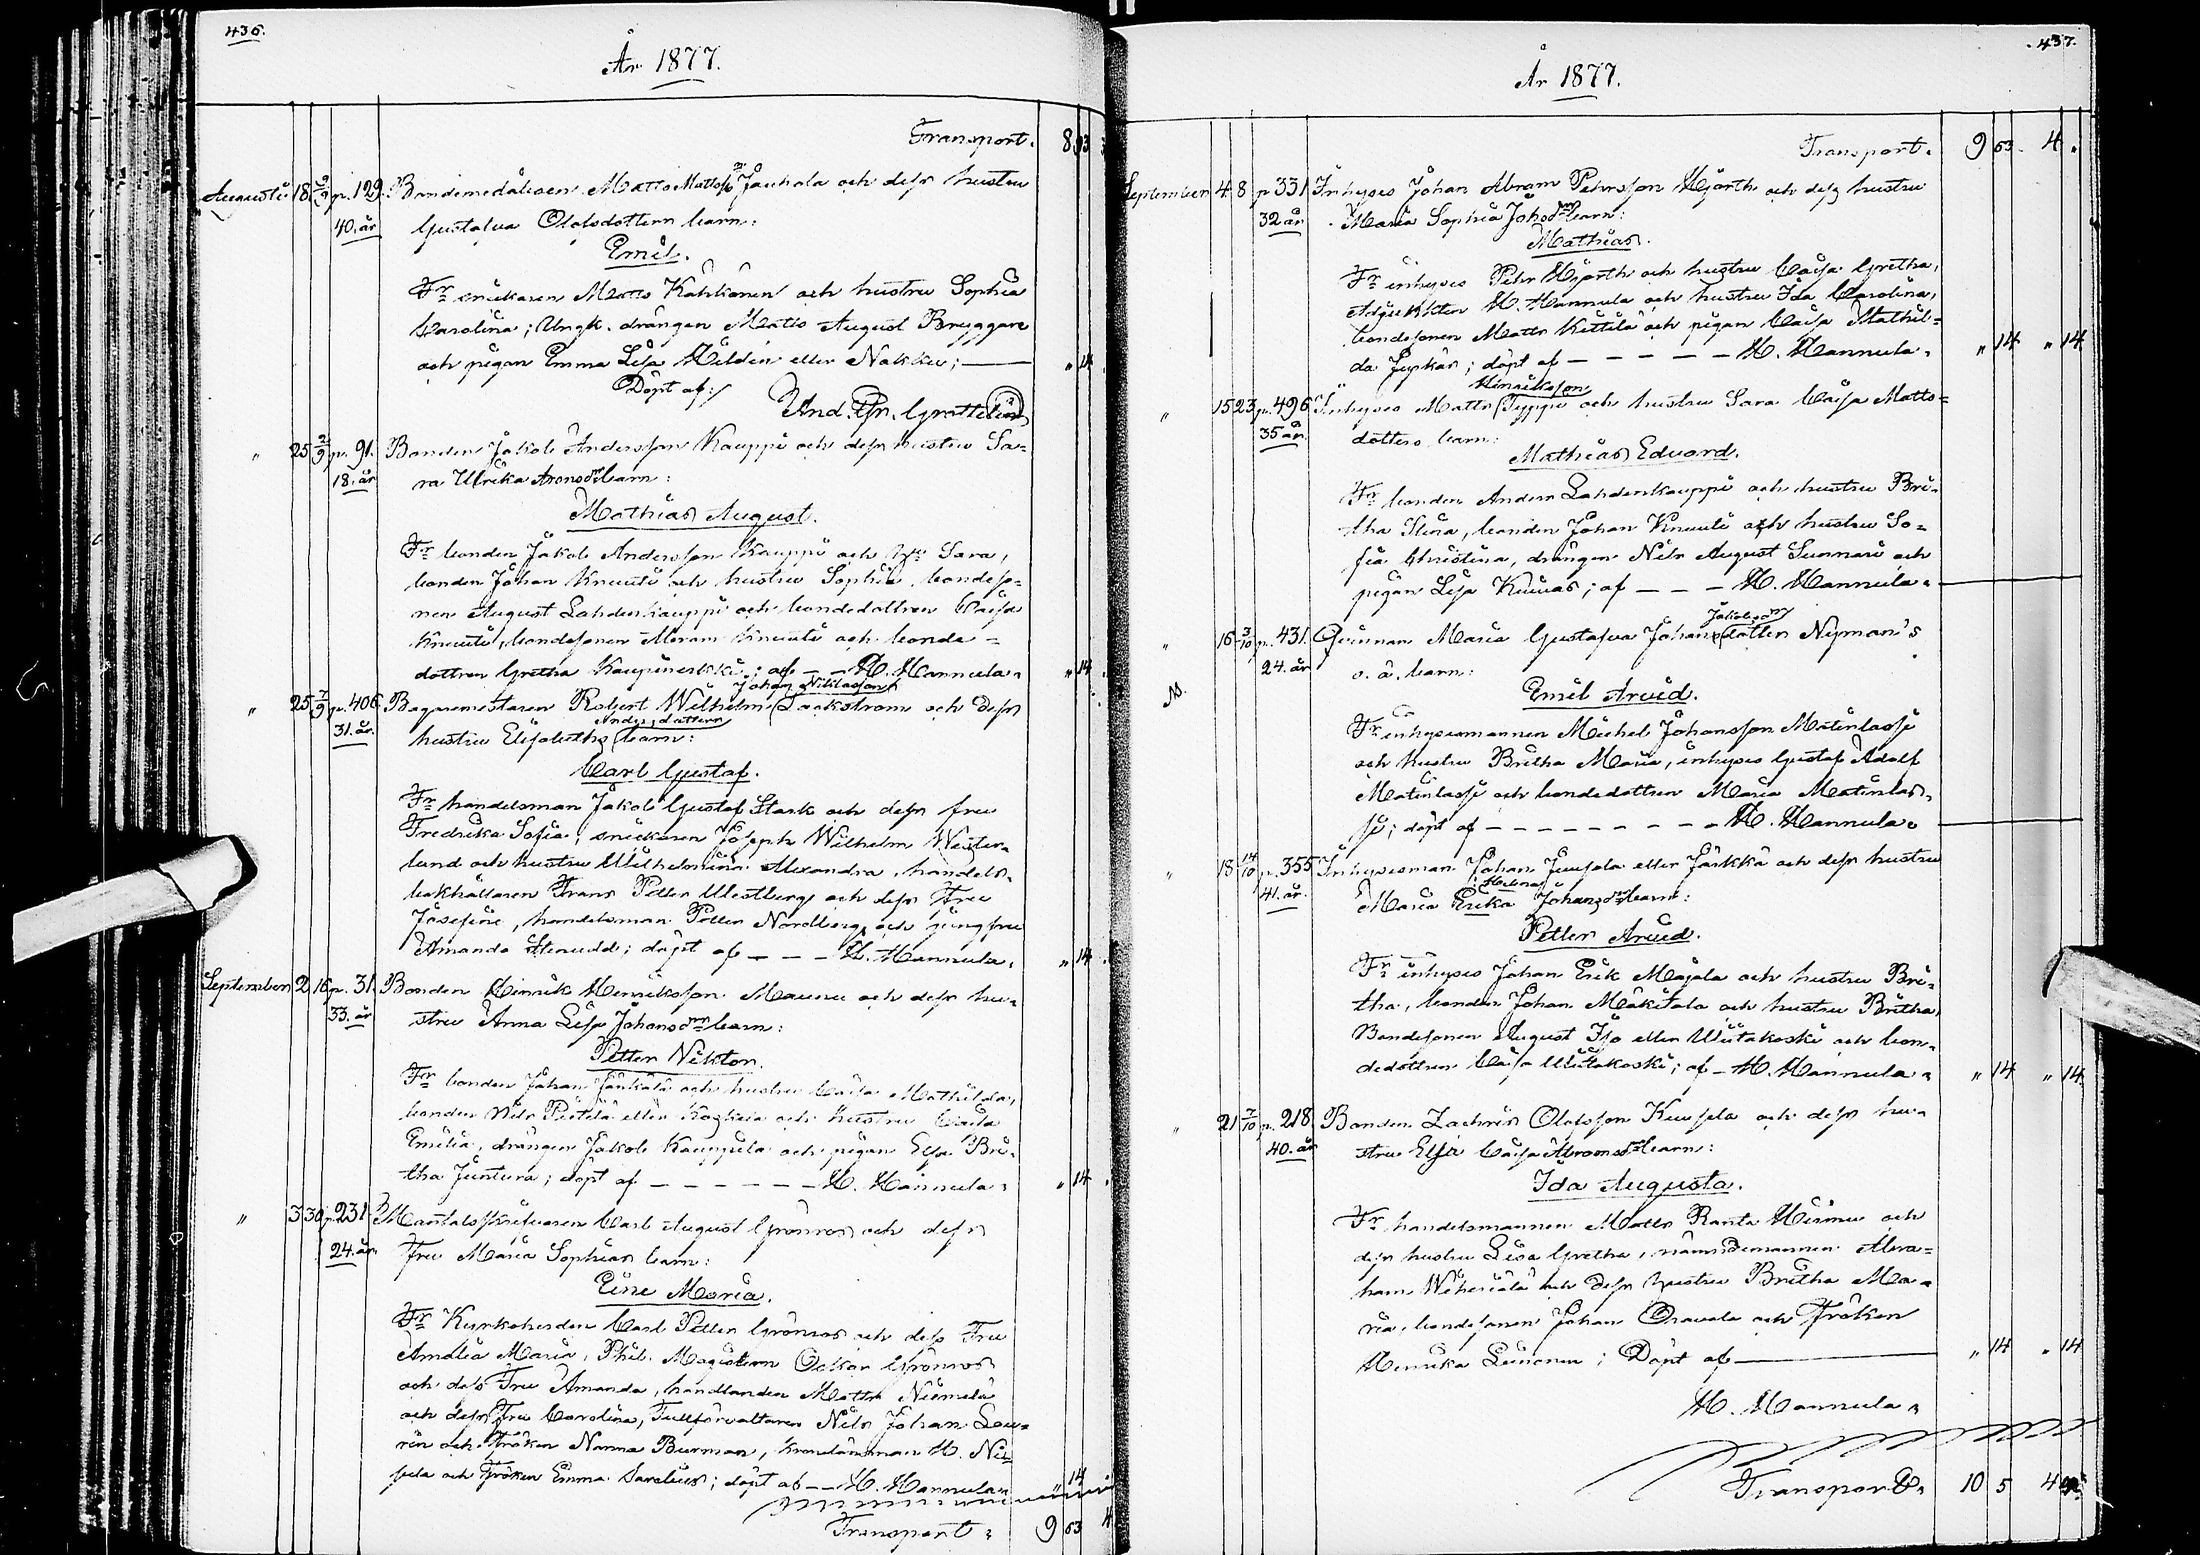 436.
År 1877.
Transport. 8 93
Augusti 18 2/9 p. 129. Bondemedålisen Matts Mattsson Jauhola och dess hustru
40. år Gustafva Olofsdotters barn:
Emil.
Fr snickaren Matts Kähkönen och hustru Sophia
Carolina; Ungk. drängen Matts August Bryggare
och pigan Emma Lisa Hildén eller Nakku; " 14
Döpt af:
And. Joh. Grattelin
" 25 2/9 p. 91. Bonden Jakob Andersson Kauppi och dess hustru Sa-
18. år ra Ulrika Aronsdrs barn:
Mathias August.
Fr bonden Jakob Andersson Kauppi och hu Sara,
bonden Johan Knuuti och hustru Sophia, bondeso-
nen August Lahdenkauppi och bondedottren Caisa
Knuuti, bondesonen Abram Knuuti och bonde-
dottren Gretha Kaupinerkki; af — H. Hannula. " 14
Johan Niklasson
" 25 7/9 p. 406. Bagaremästaren Robert Wilhelm Lackström och dess
31. år. hustru Elisabeths Andersdotters barn:
Carl Gustaf.
Fr handelsman Jakob Gustaf Stark och dess fru
Fredrika Sofia; snickaren Joseph Wilhelm Wester-
lund och hustru Wilhelmina Alexandra, handels-
bokhållaren Frans Petter Westberg och dess Fru
Josefine, handelsman Petter Nordberg och jungfru
Amanda Stenudd; döpt af — — — H. Hannula. " 14
September 2 16 p. 31. Bonden Henrik Henriksson Maunu och dess hu-
33. år stru Anna Lisa Johansdrs barn:
Petter Nikton.
Fr bonden Johan Jänkälä och hustru Caisa Mathilda,
bonden Nils Pietilä eller Koskela och hustru Caisa
Emilia, drängen Jakob Kauppila och pigan Elsa Bri-
tha Juntura; döpt af — — — — — — H. Hannula. " 14
" 3 30 p. 231 Mantalsskrifvaren Carl August Grönroos och dess
24. år. Fru Maria Sophias barn:
Eine Maria.
Fr Kyrkoherden Carl Petter Grönroos och dess Fru
Amalia Maria, Phil. Magistern Oskar Grönroos
och dess Fru Amanda, handlanden Matts Niemelä
och dess Fru Carolina, Tullförvaltaren Nils Johan Lau-
rén och Fröken Nanna Burman, kronolänsman H. Nii-
pela och Fröken Emma Sarelius; döpt af — — H. Hannula. " 14
Transport. 9 63 4
437.
År 1877.
Transport. 9 63 4
September 4 8 p 331 Inhyses Johan Abram Pehrsson Hjorth och dess hustru
32 år Maria Sophia Johsdrs barn:
Mathias.
Fr inhyses Pehr Hjorth och hustru Caisa Gretha,
Adjunkten H. Hannula och hustru Ida Carolina,
bondesonen Matts Kittilä och pigan Caisa Mathil-
da Junkas; döpt af — — — — — H. Hannula. " 14 " 14
Henriksson
" 15 23 p. 496 Inhyses Matts Tyyppi och hustru Sara Caisa Matts-
35 år dotters barn:
Mathias Edvard.
Fr bonden Anders Lahdenkauppi och hustru Bri-
tha Stina, bonden Johan Knuuti och hustru So-
fia Christina, drängen Nils August Sunnari och
pigan Lisa Kuivas; af — — — H. Hannula.
" 16 3/10 p. 431. Qvinnan Maria Gustafva Johansdotter Nyman's
24. år o. ä. barn:
Emil Arvid.
Fr inhysesmannen Michel Johansson Matinlassi
och hustru Britha Maria, inhyses Gustaf Adolf
Matinlassi och bondedottren Maria Matinlas-
si; döpt af — — — — — — — — H. Hannula.
" 18 14/10 p. 355 Inhysesman Johan Juusola eller Järkkä och dess hustru
41. år. Maria Erika Johansdrs barn:
Petter Arvid.
Fr inhyses Johan Erik Majala och hustru Bri-
tha, bonden Johan Mäkitalo och hustru Britha,
Bondesonen August Iso eller Wiitakoski och bon-
dedottren Caisa Wiitakoski; af — H. Hannula. " 14 " 14
" 21 7/10 p. 218. Bonden Zachris Olofsson Kuusela och dess hu-
40. år stru Elsa Caisa Abramsdrs barn:
Ida Augusta.
Fr handelsmannen Matts Ranta Hirmu och
dess hustru Lisa Gretha, nämndemannen Abra-
ham Wiheriälä och dess hustru Britha Ma-
ria, bondesonen Johan Oravala och Fröken
Henrika Leinonen; Döpt af " 14 " 14
H. Hannula.
Transport. 10 5 4